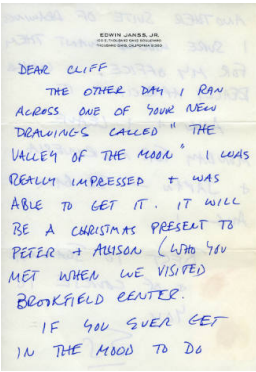 EDWIN JANSS, JR.
THOUSAND OAKS, CALIFORNIA
DEAR CLIFF
THE OTHER DAY I RAN
ACROSS ONE OF YOUR NEW
DRAWINGS CALLED "THE
VALLEY OF THE MOON" I WAS
REALLY IMPRESSED + WAS
ABLE TO GET IT. IT WILL
BE A CHRISTMAS PRESENT TO
PETER + ALYSON (WHO YOU
MET WHEN WE VISITED
BROOKFIELD CENTER.
IF YOU EVER GET
IN THE MOOD TO DO